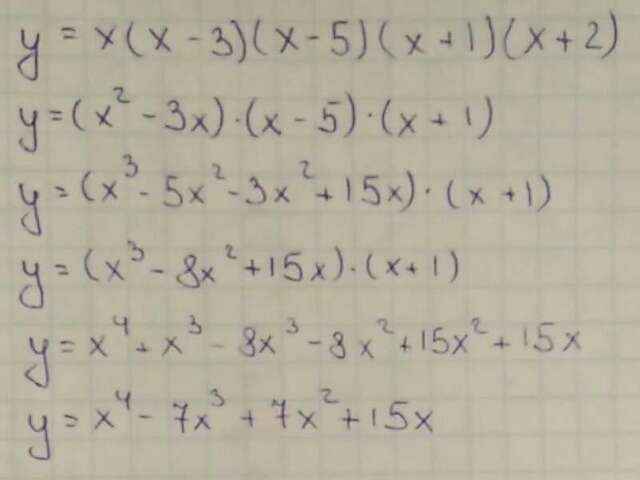 y = x(x - 3)(x - 5)(x + 1)(x + 2)
y = (x² - 3x)·(x - 5)·(x + 1)
y = (x³ - 5x² - 3x² + 15x)·(x + 1)
y = (x³ - 8x² + 15x)·(x + 1)
y = x⁴ + x³ - 8x³ - 8x² + 15x² + 15x
y = x⁴ - 7x³ + 7x² + 15x